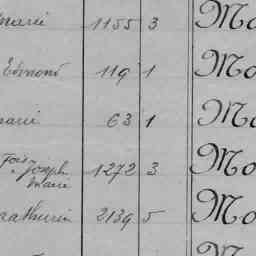 marie 1155 3 Mo
Edmond 119 1 Mo
marie 63 1 Mo
Fois Joseph Marie 1272 3 Mo
Mathurin 2139 5 Mo